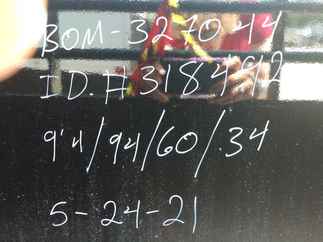 BOM-327044
I.D.#318492
9'4/94/60/.34
5-24-21